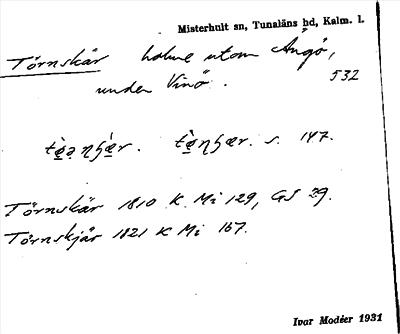 Misterhult sn, Tunaläns hd, Kalm. l.
Törnskär holme utom Ängö,
under Vinö. 532
s. 147.
Törnskär 1810 K. Mi 129, GS 29.
Törnskjär 1821 K Mi 167.
Ivar Modéer 1931